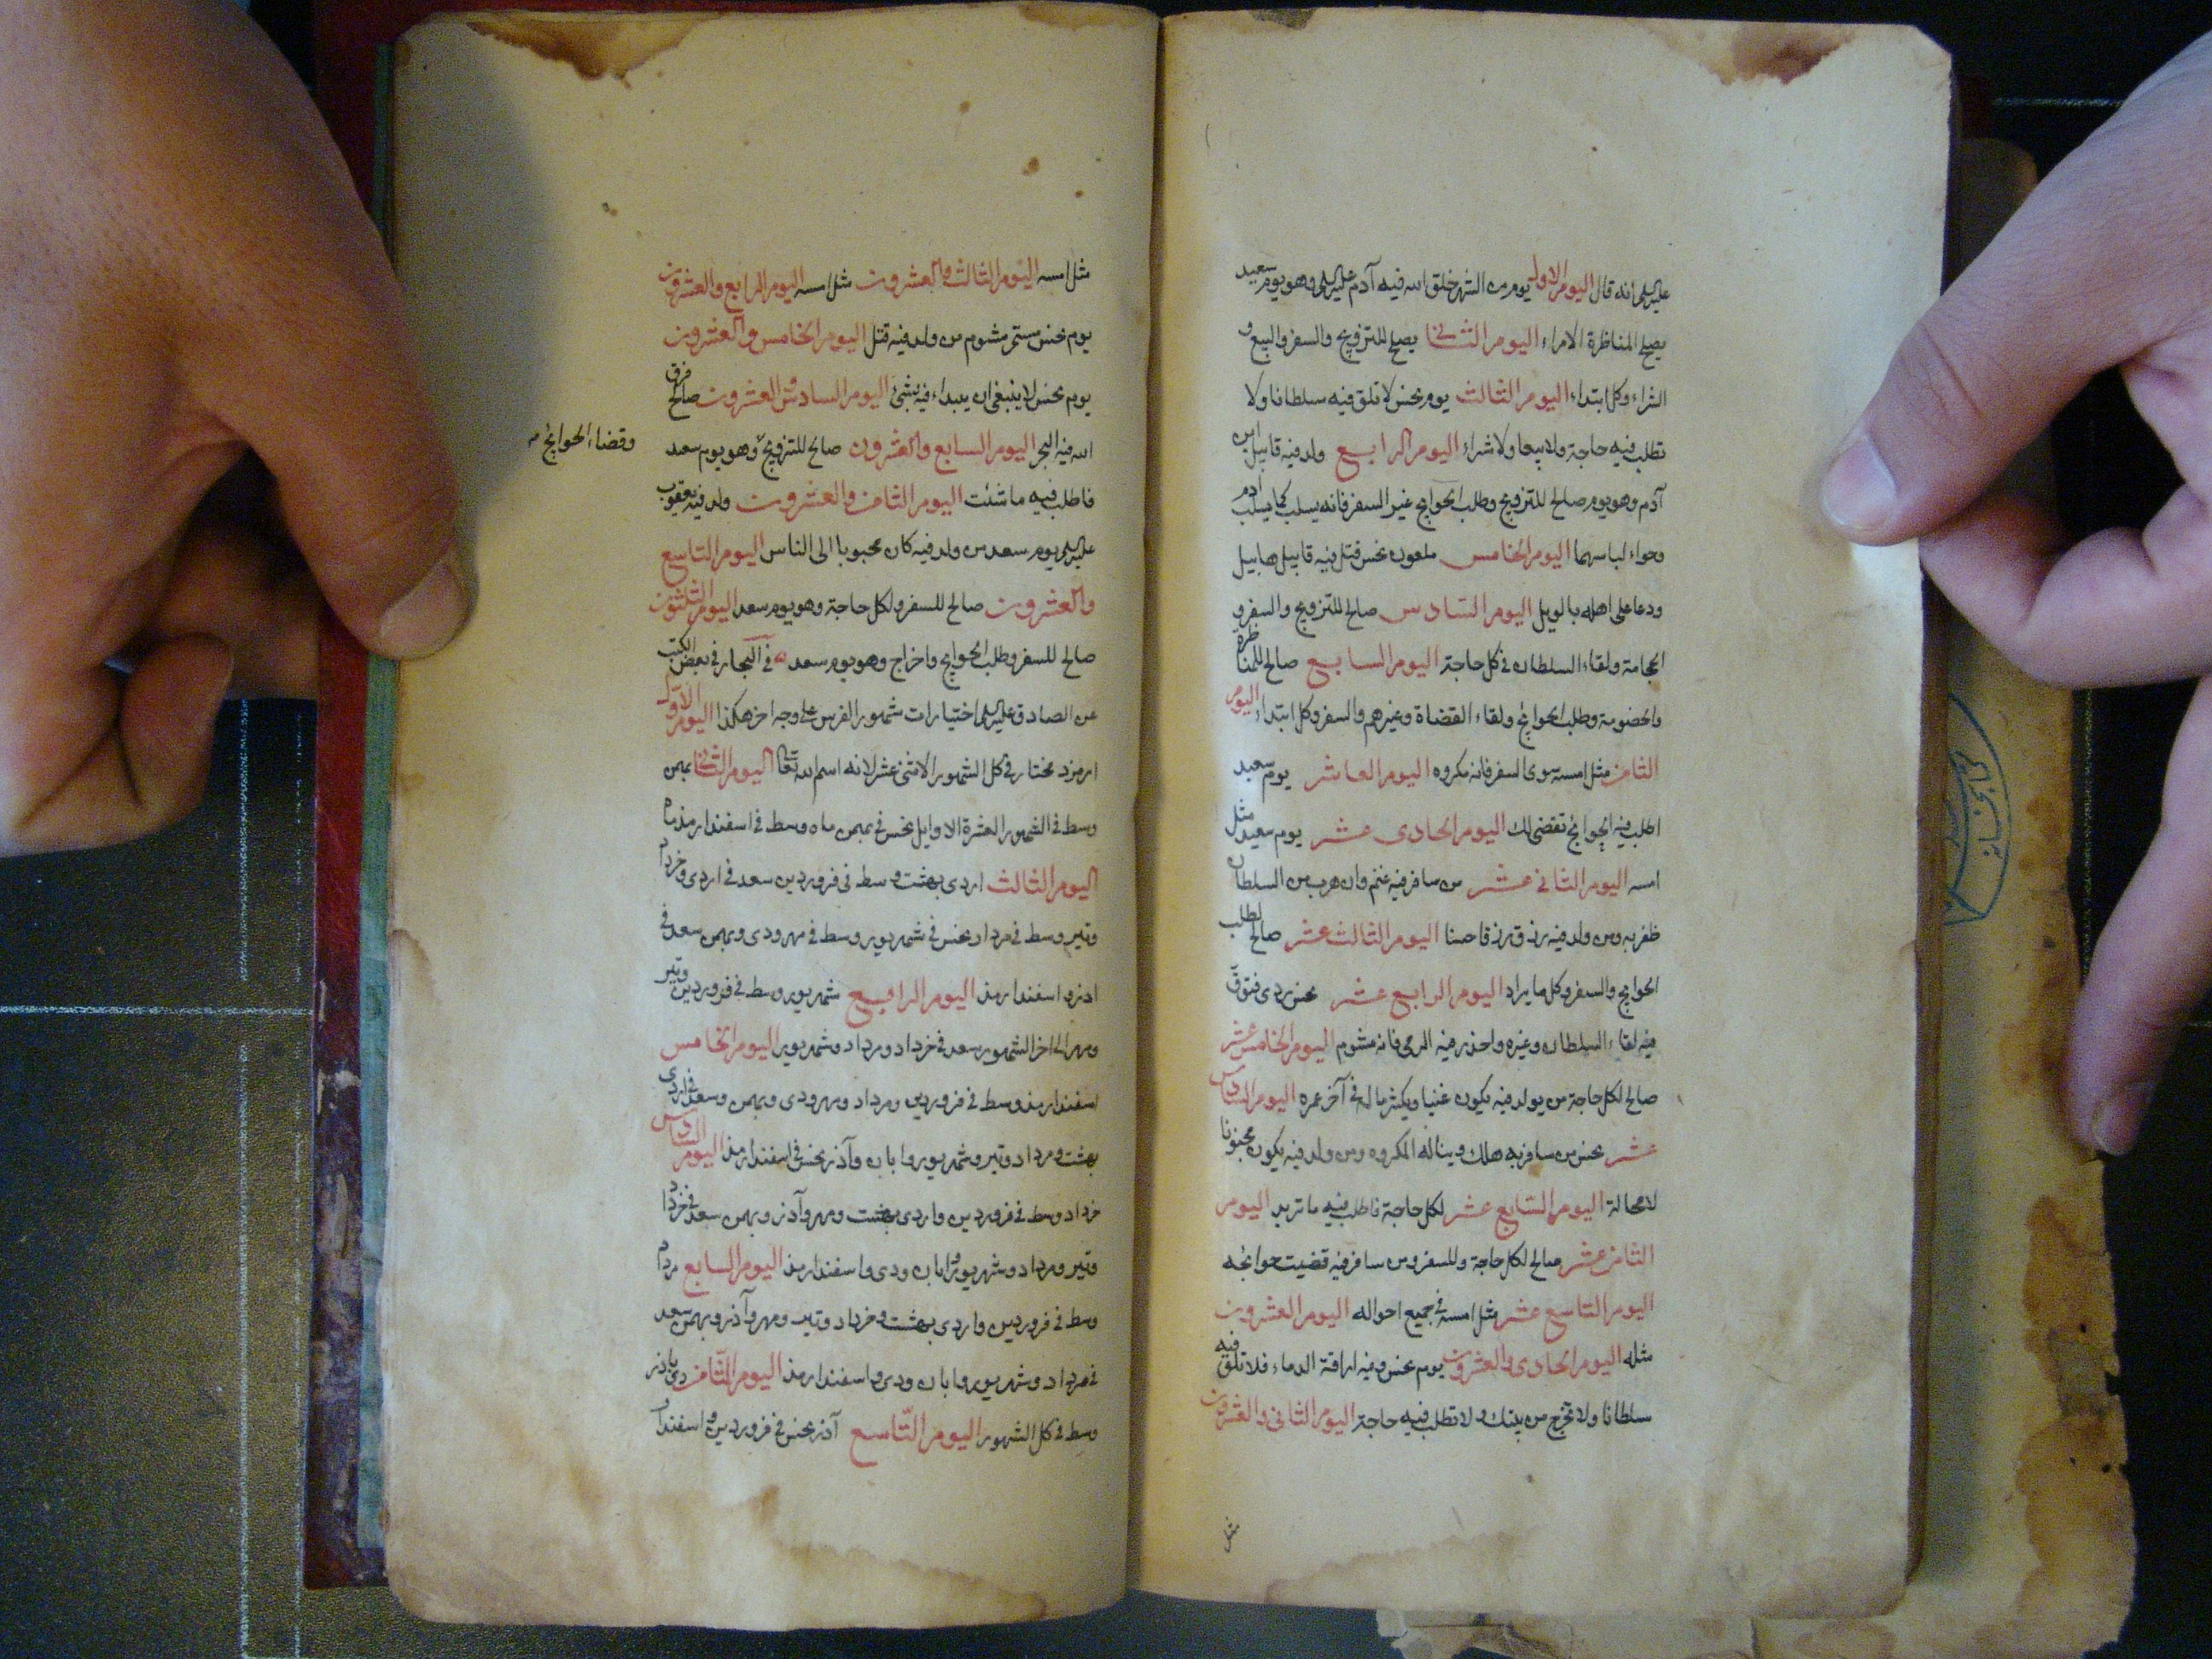 عليه السلام انه قال اليوم الاول يوم من الشهر خلق الله فيه آدم عليه السلام وهو يوم سعيد
يصلح لمناظرة الامراء اليوم الثاني يصلح للتزويج والسفر والبيع و
الشراء وكل ابتداء اليوم الثالث يوم نحس لا تلق فيه سلطانا ولا
تطلب فيه حاجة ولا بيعا ولا شراء اليوم الرابع ولد فيه قابيل ابن
آدم وهو يوم صالح للتزويج وطلب الحوايج غير السفر فانه يسلب كما سلب آدم
وحواء لباسهما اليوم الخامس ملعون نحس قتل فيه قابيل هابيل
ودعا على اهله بالويل اليوم السادس صالح للتزويج والسفر و
الحجامة ولقاء السلطان في كل حاجة اليوم السابع صالح للمناظرة
والخصومة وطلب الحوايج ولقاء القضاة وغيرهم والسفر وكل ابتداء اليوم
الثامن مثل امسه سوى السفر فانه مكروه اليوم العاشر يوم سعيد
اطلب فيه الحوايج تقضى لك اليوم الحادى عشر يوم سعيد مثل
امسه اليوم الثانى عشر من سافر فيه غنم وان هرب من السلطان
ظفر به ومن ولد فيه رزق رزقا حسنا اليوم الثالث عشر صالح لطلب
الحوايج والسفر وكل ما يراد اليوم الرابع عشر نحس ردى فتوق
فيه لقاء السلطان وغيره واحذر فيه الرمى فانه مشوم اليوم الخامس عشر
صالح لكل حاجة من يولد فيه يكون غنيا ويكثر ماله في آخر عمره اليوم السادس
عشر نحس من سافر به هلك ويناله المكروه ومن ولد فيه يكون مجنونا
لا محالة اليوم السابع عشر لكل حاجة فاطلب فيه ما تريد اليوم
الثامن عشر صالح لكل حاجة وللسفر ومن سافر فيه قضيت حوائجه
اليوم التاسع عشر مثل امسه في جميع احواله اليوم العشرون
مثله اليوم الحادى والعشرون يوم نحس وفيه اراقة الدماء فلا تلق فيه
سلطانا ولا تخرج من بيتك ولا تطلب فيه حاجة اليوم الثانى والعشرون
مثل
مثل امسه اليوم الثالث والعشرون مثل امسه اليوم الرابع والعشرون
يوم نحس مستمر مشوم من ولد فيه قتل اليوم الخامس والعشرون
يوم نحس لا ينبغى ان يبداء فيه بشئ اليوم السادس والعشرون صالح فرق
الله فيه البحر اليوم السابع والعشرون صالح للتزويج وهو يوم سعد
وقضاء الحوايج
فاطلب فيه ما شئت اليوم الثامن والعشرون ولد فيه يعقوب
عليه السلام يوم سعد من ولد فيه كان محبوبا الى الناس اليوم التاسع
والعشرون صالح للسفر ولكل حاجة وهو يوم سعد اليوم الثلثون
صالح للسفر وطلب الحوايج واخراج وهو يوم سعد في البحار في بعض الكتب
عن الصادق عليه السلام اختيارات شهور الفرس على وجه اخر هكذا اليوم الاول
ارمزد مختار في كل الشهور الاثنى عشر لانه اسم الله تعا اليوم الثاني بهمن
وسط في الشهور العشرة الاوايل نحس في بهمن ماه وسط في اسفندارمذ ماه
اليوم الثالث اردى بهشت وسط في فروردين سعد في اردى وخرداد
وتير وسط في مرداد نحس في شهريور وسط في مهر ودى وبهمن سعد في
اذر و اسفندارمذ اليوم الرابع شهريور وسط في فروردين وتير
ومهر الى اخر الشهور سعد في خرداد ومرداد وشهريور اليوم الخامس
اسفندارمذ وسط في فروردين ومرداد ومهر ودى وبهمن وسعد في اردى
بهشت ومرداد وتير وشهريور وابان وآذر نحس في اسفندارمذ اليوم السادس
خرداد وسط في فروردين واردى بهشت ومهر وآذر وبهمن سعد في خرداد
وتير ومرداد وشهريور وابان ودى واسفندارمذ اليوم السابع مرداد
وسط في فروردين واردى بهشت وخرداد وتير ومهر وآذر وبهمن سعد
في مرداد وشهريور وابان ودى واسفندارمذ اليوم الثامن دى باذر
وسط في كل الشهور اليوم التاسع آذر نحس في فروردين و اسفندار